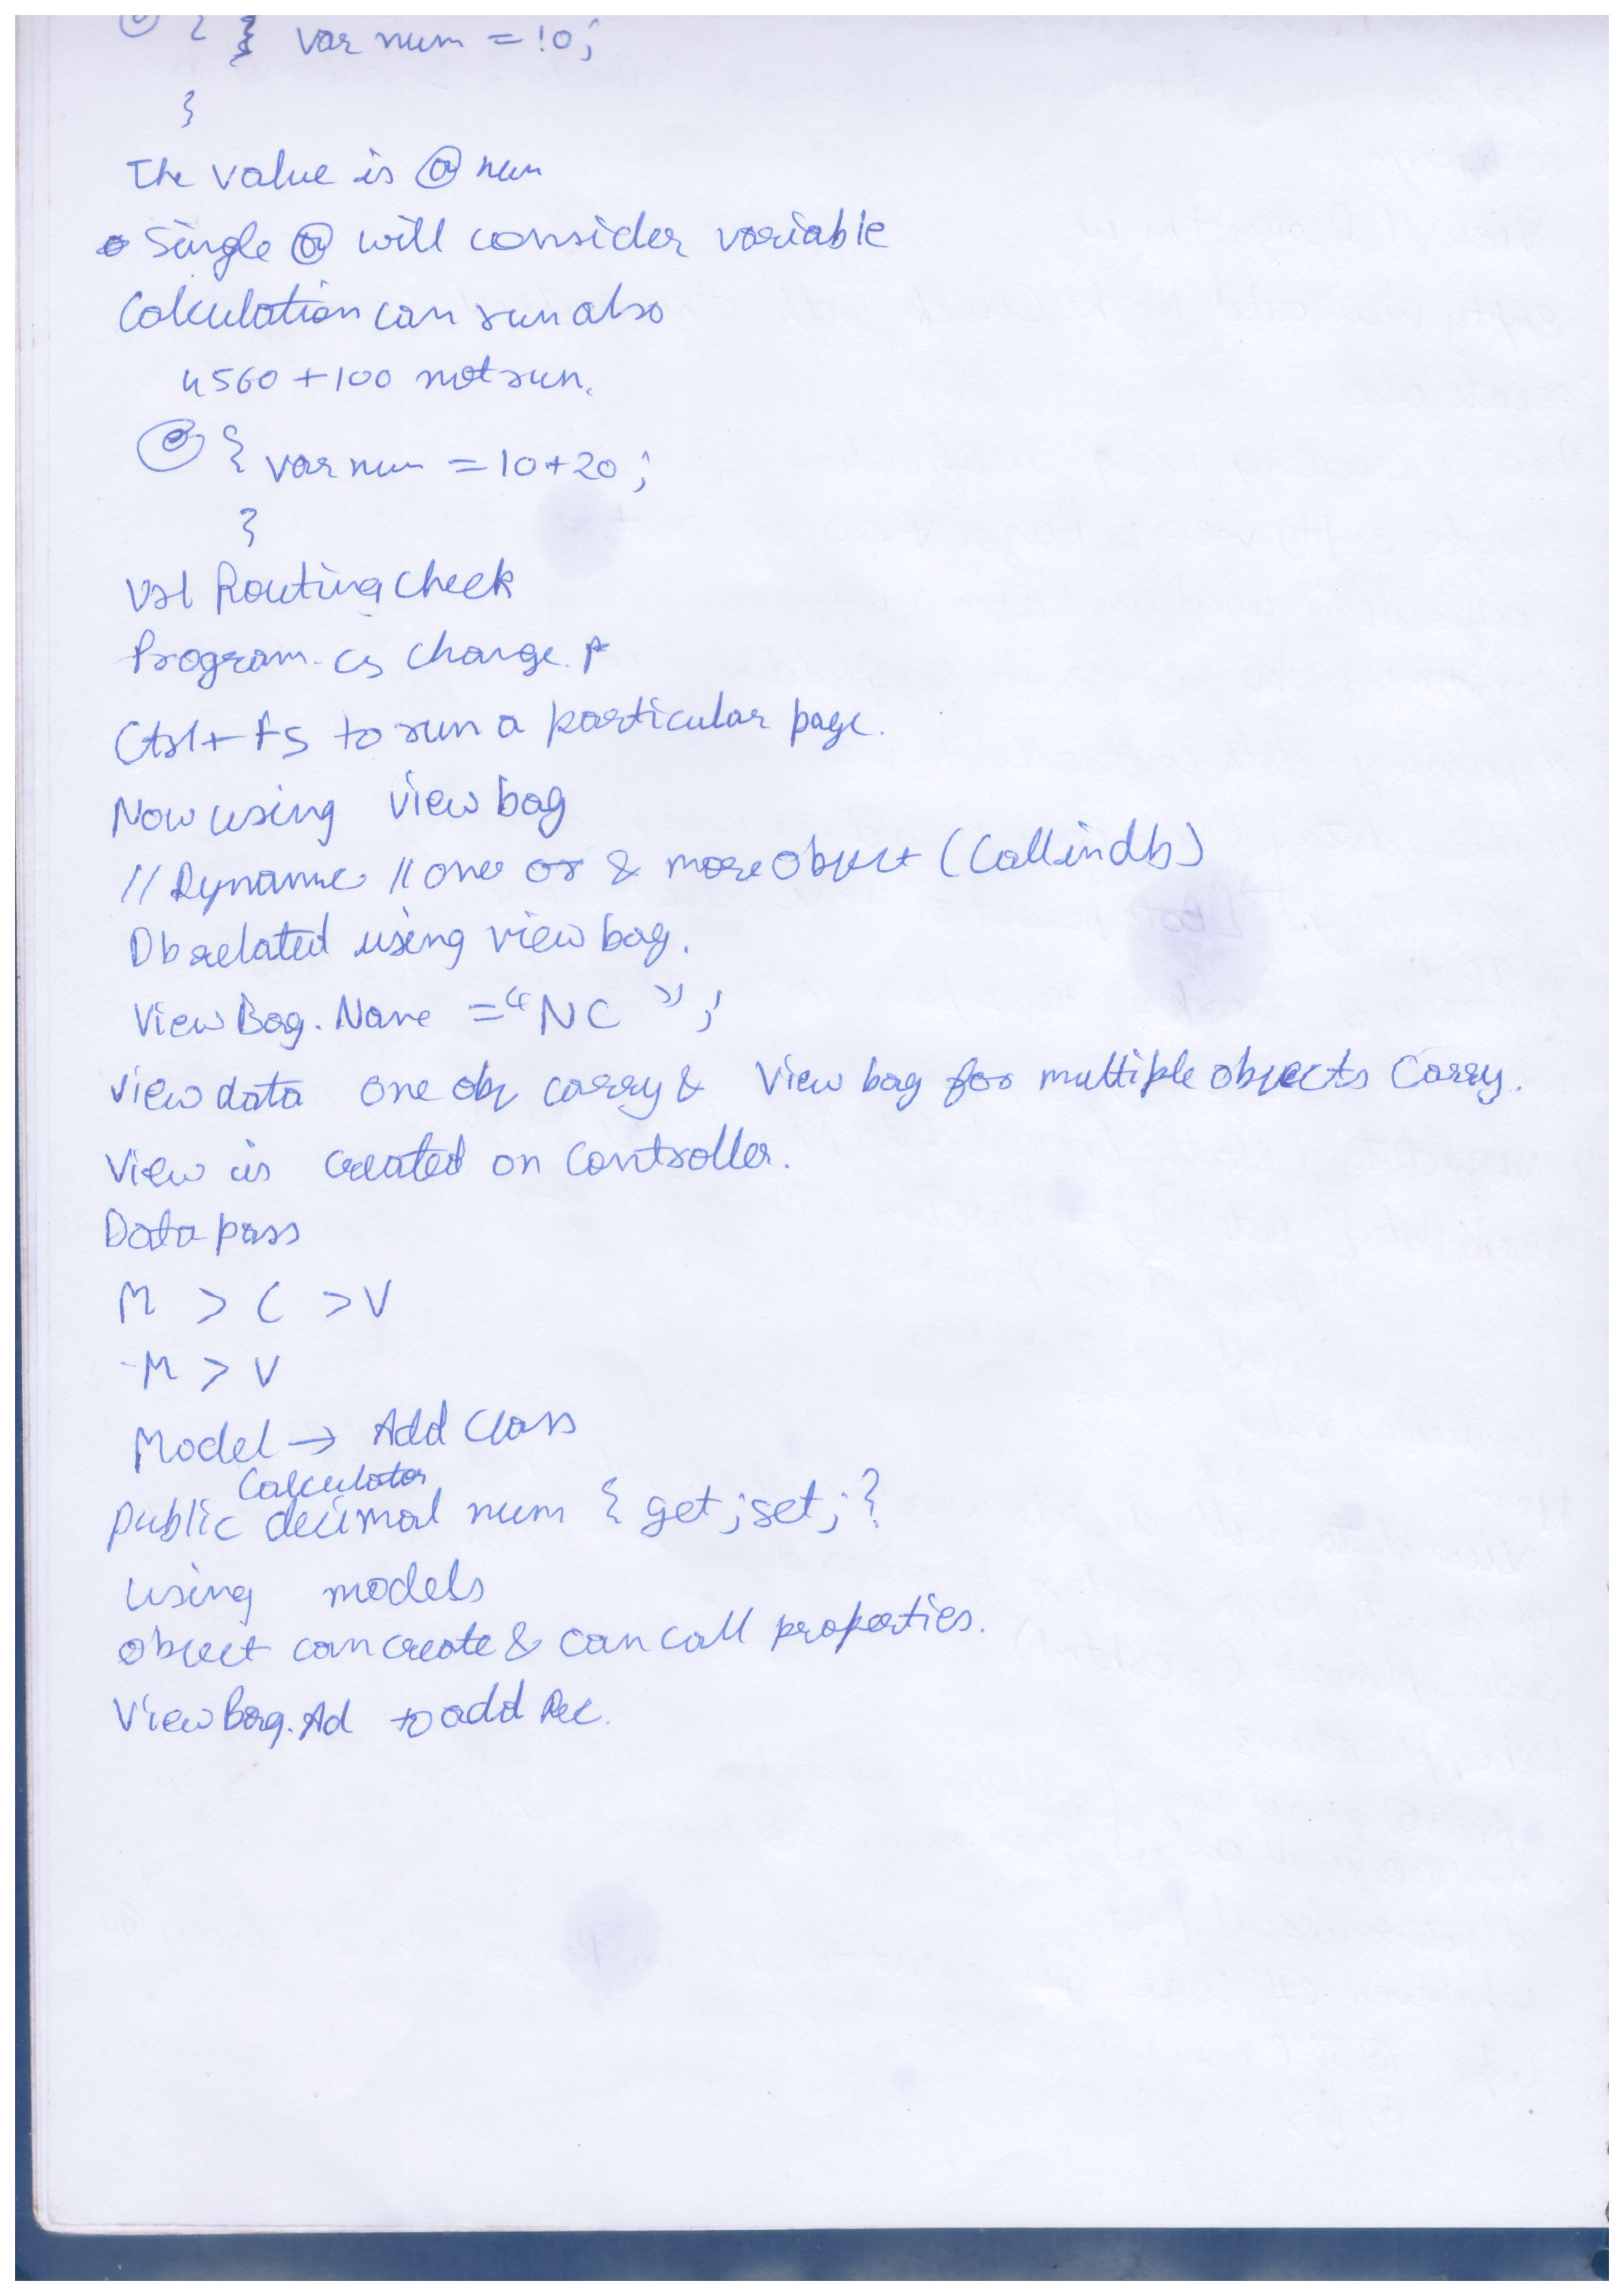 @ { } var num = 10;
}
The value is @ num
Single @ will consider variable
Calculation can run also
4560 + 100 not run.
@ { var num = 10+20;
}
Url Routing Check
Program.cs change.
Ctrl + F5 to run a particular page.
Now using view bag
// Dynamic // one or & more object (Call in db)
Db related using view bag.
View Bag. Name = "NC";
view data one obj carry & View bag for multiple objects Carry.
View is created on Controller.
Data pass
M > C > V
M > V
Model → Add Class
Calculator
public decimal num { get; set; }
using models
Object can create & can call properties.
View Bag. Ad to add